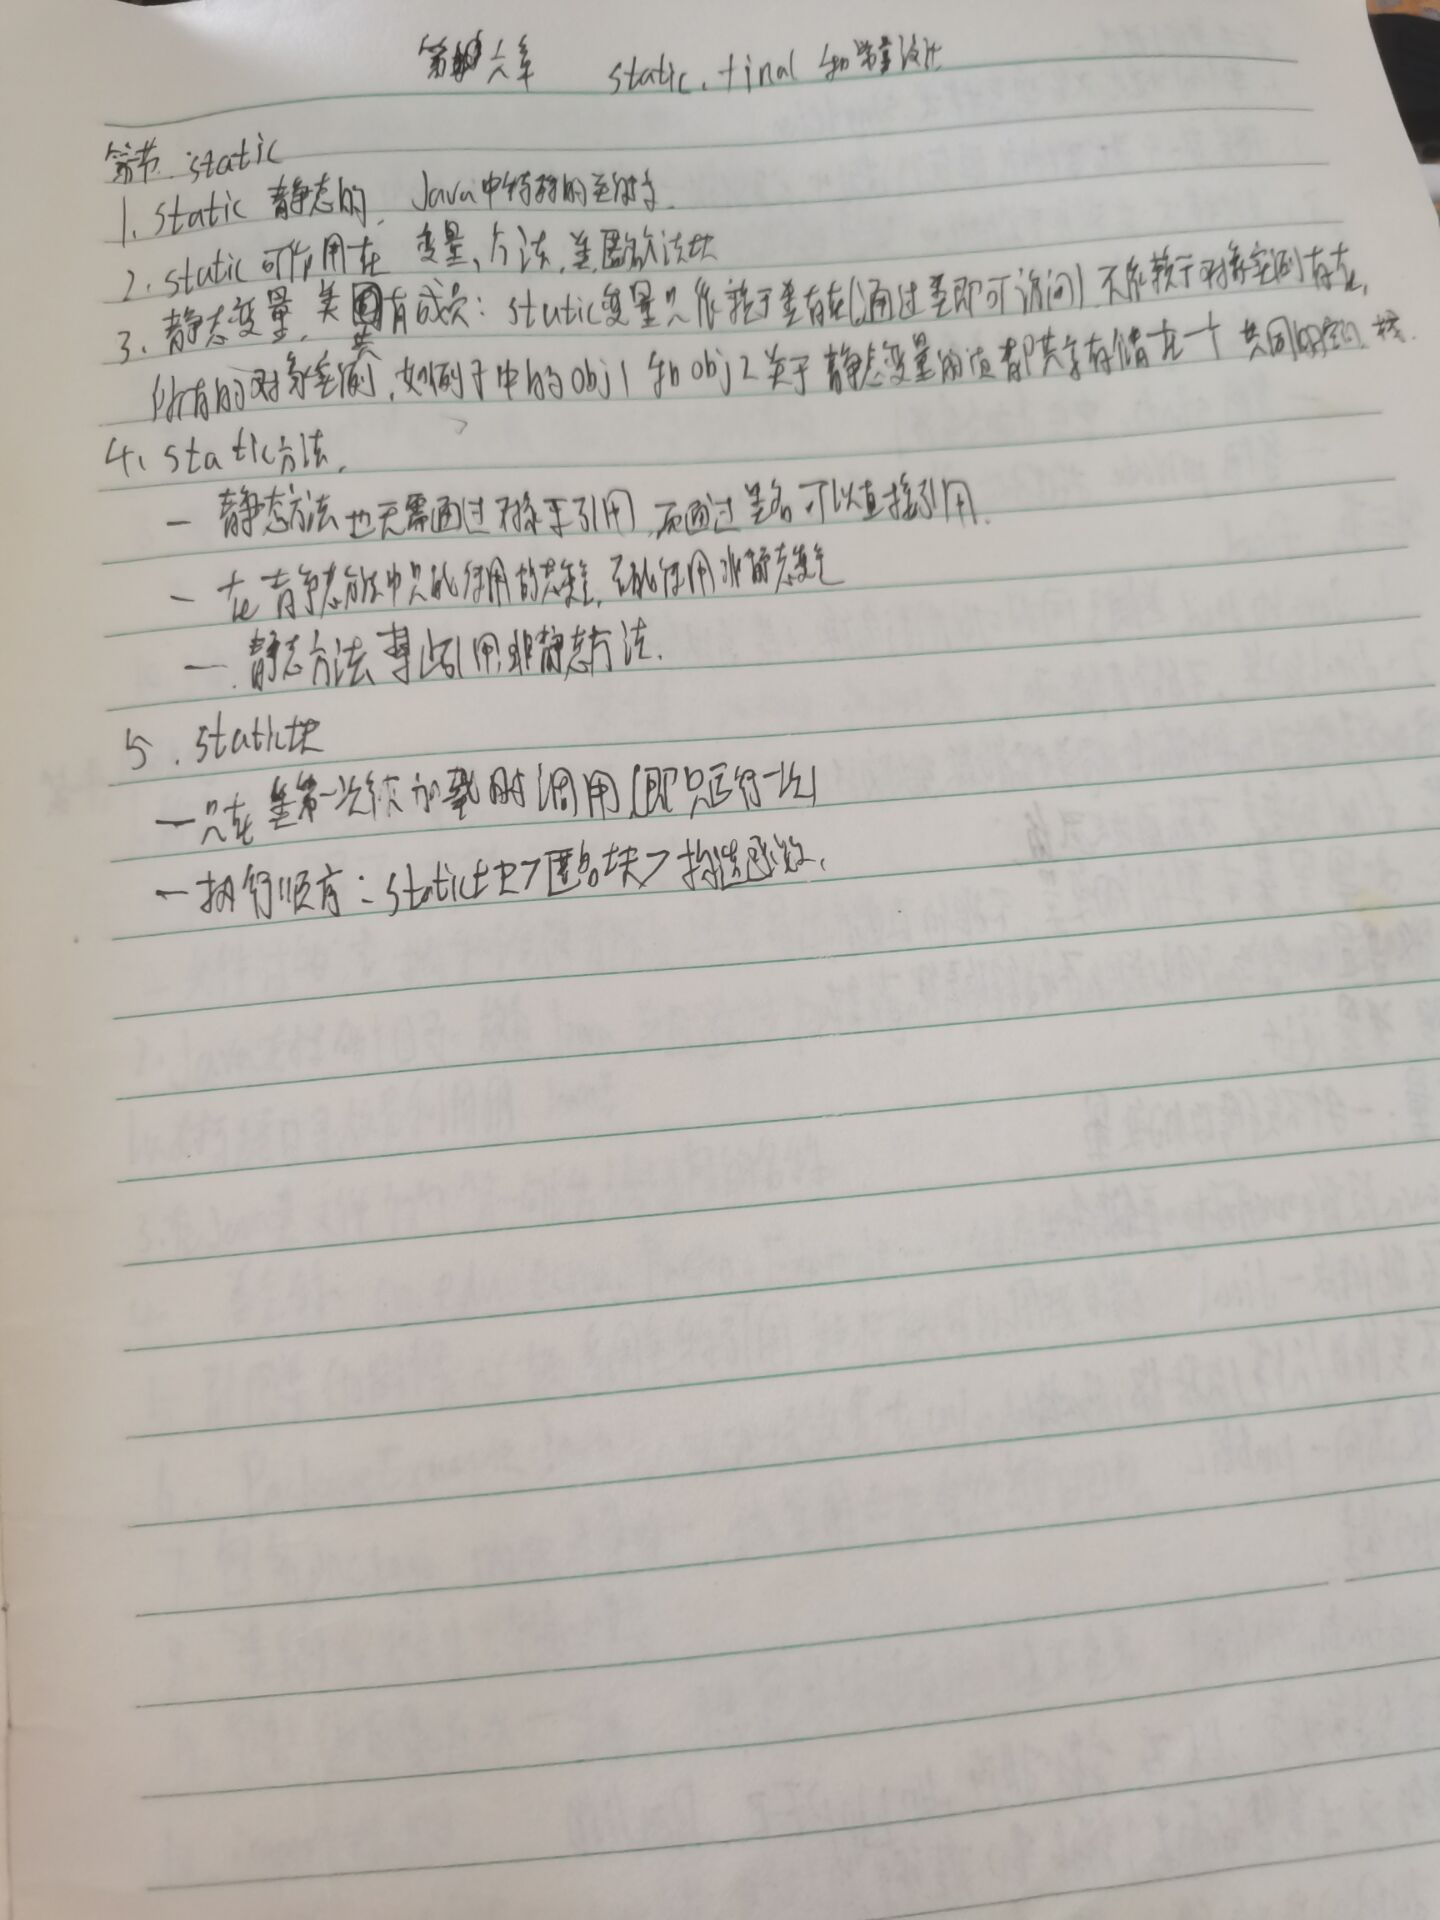 第六章 static、final和常量设计
第一节 static
1. static 静态的, Java中特殊的关键字.
2. static可作用在 变量、方法、类、匿名方法块
3. 静态变量, 类共有成员: static变量只依赖于类存在(通过类即可访问) 不依赖于对象实例存在,
所有的对象实例, 如例子中的obj1和obj2关于静态变量的值都共享存储在一个共同的空间 栈.
4、static方法,
— 静态方法也无需通过对象来引用, 而通过类名可以直接引用.
— 在静态方法中只能使用静态变量, 不能使用非静态变量
— 静态方法禁止引用非静态方法.
5. static块
— 只在类第一次被加载时调用(即只运行一次)
— 执行顺序: static块>匿名块>构造函数.